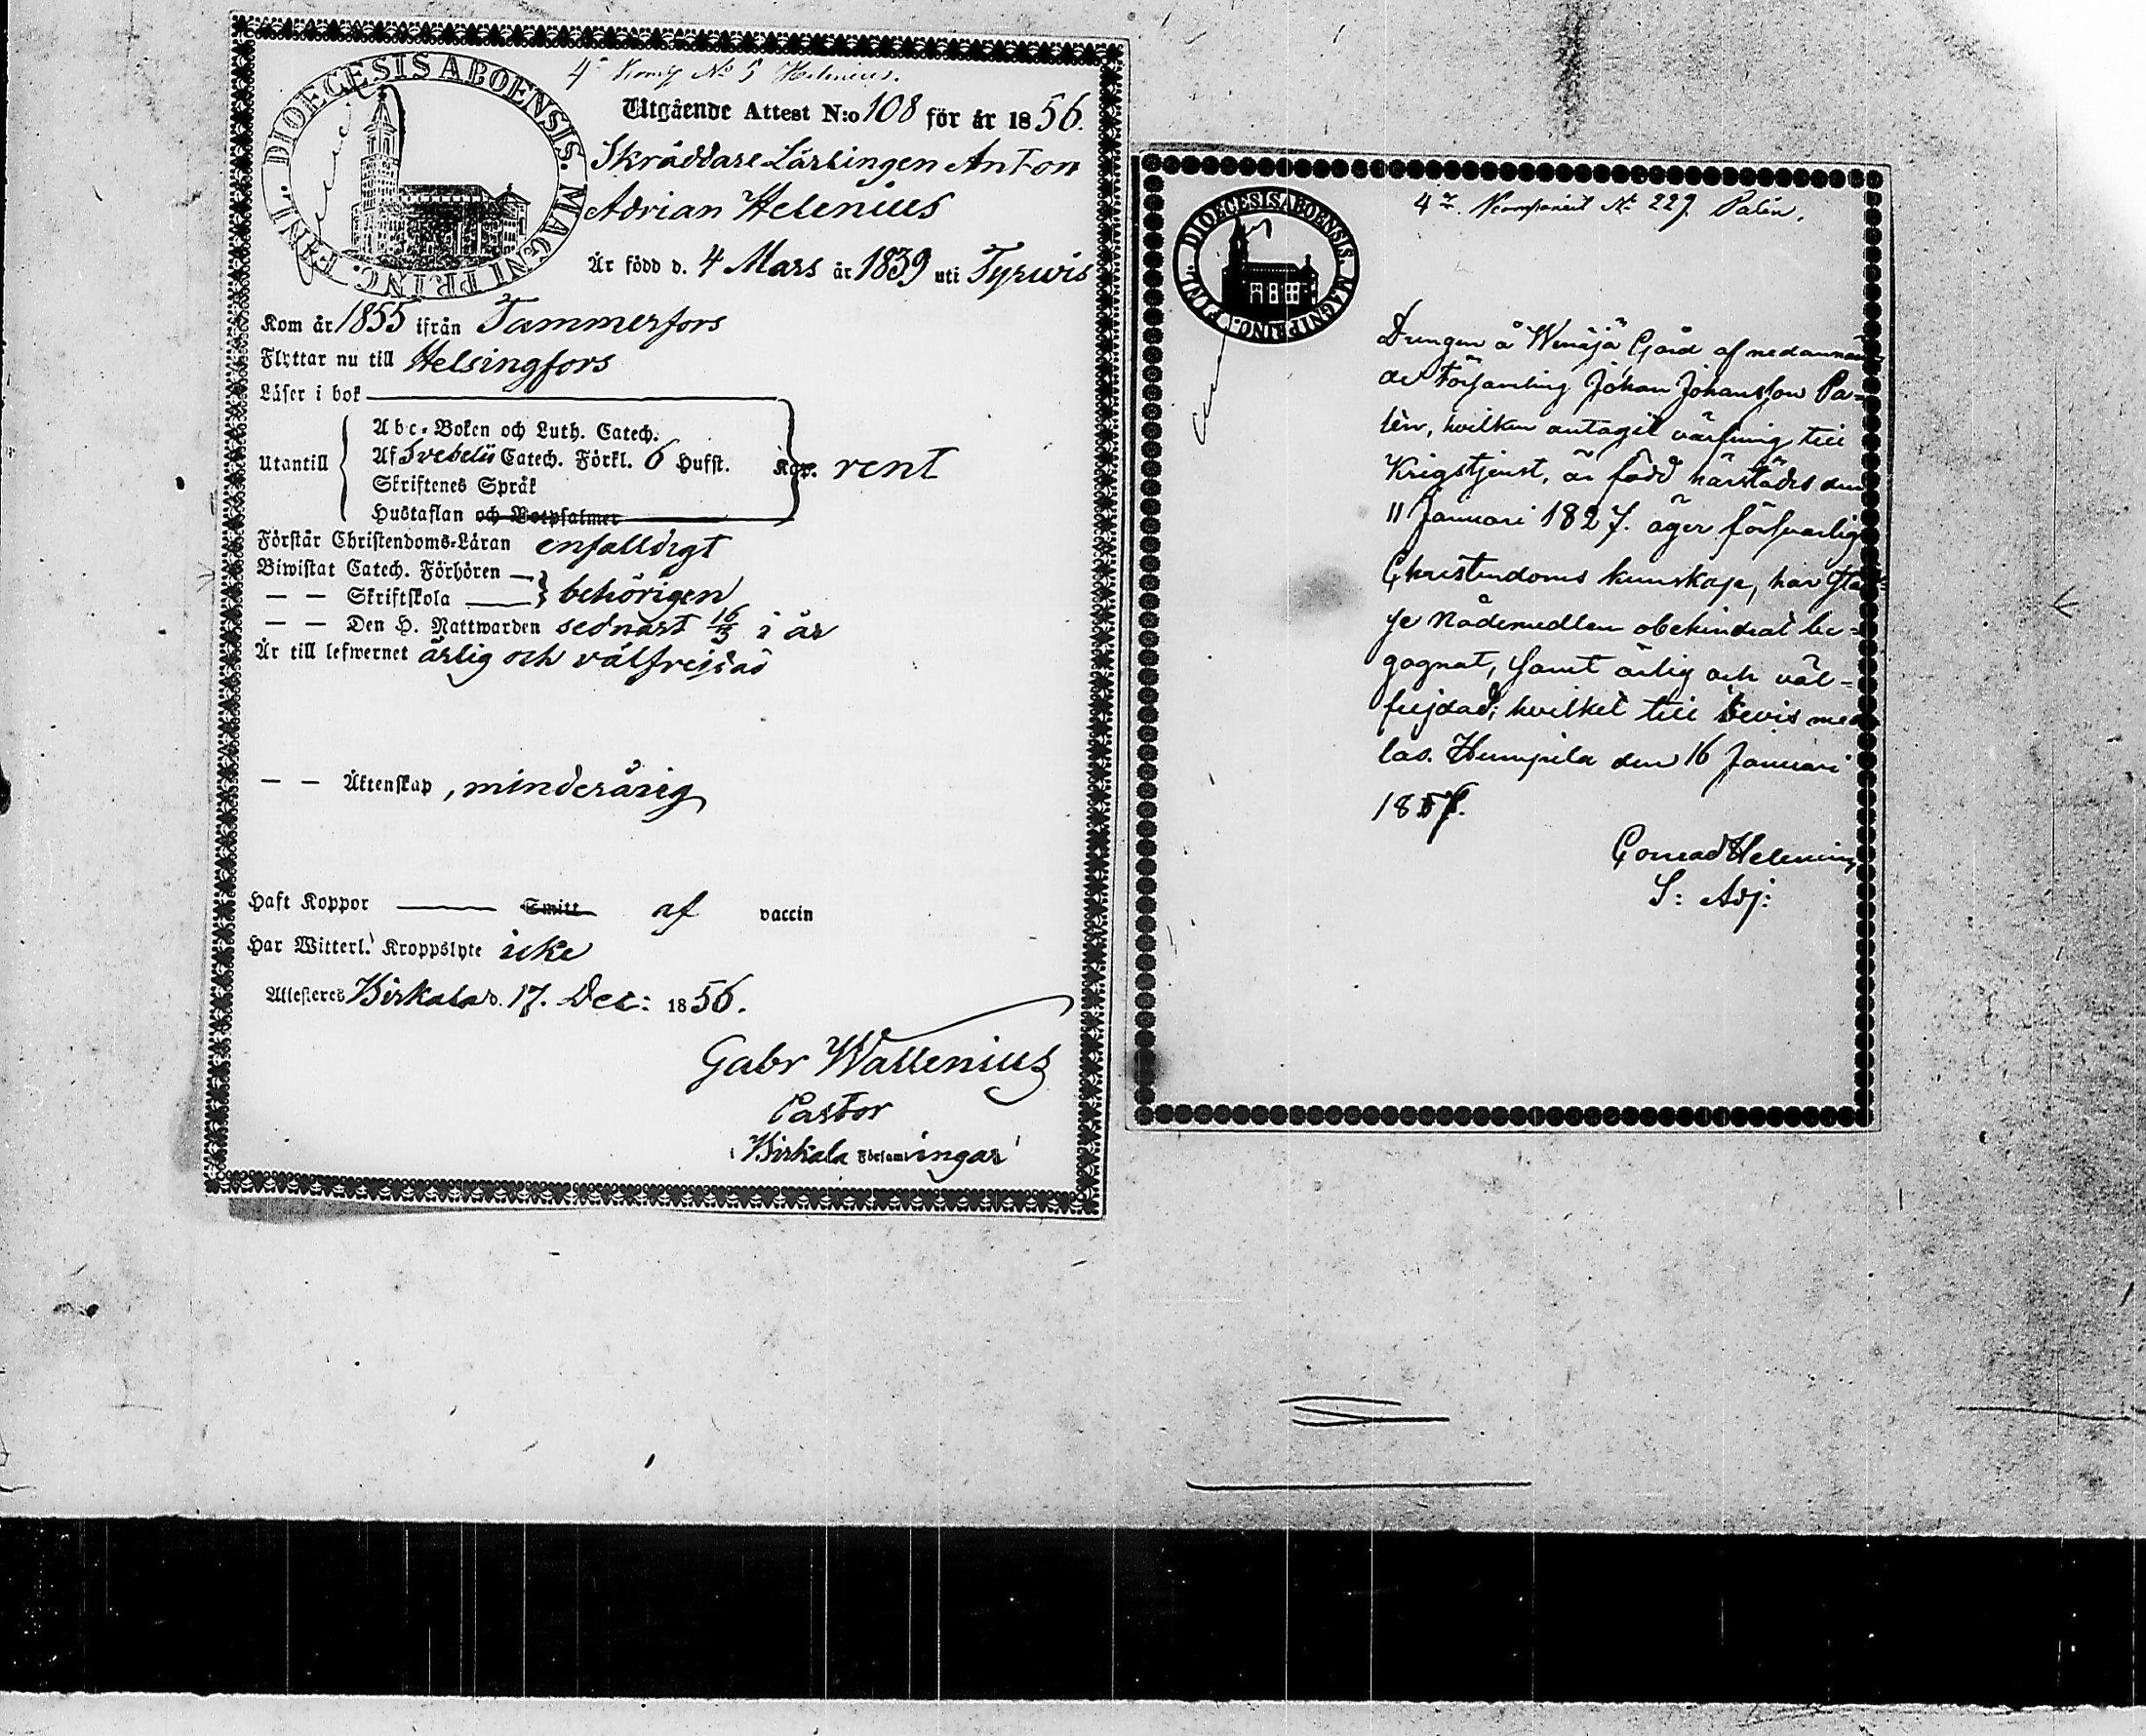 DIOECESIS ABOENSIS. MAGNI PRINC. FINL.
4 Komp No 5 Helenius.
Utgående Attest N:o 108 för år 1856.
Skräddare Lärlingen Anton
Adrian Helenius
Är född d. 4 Mars år 1839 uti Tyrwis
Kom år 1855 ifrån Tammerfors
Flyttar nu till Helsingfors
Läser i bok
Abc-Boken och Luth. Catech.
Utantill Af Svebelii Catech. Förkl. 6 Hufst. Kap. rent
Skriftenes Språk
Hustaflan och Botpsalmer
Förstår Christendoms-Läran enfalldigt
Biwistat Catech. Förhören
— — Skriftskola behörigen
— — Den H. Nattwarden sednast 16/3 i år
Är till lefwernet ärlig och välfrejdad
— — Äktenskap, minderårig
Haft Koppor Smitt af vaccin
Har Witterl. Kroppslyte icke
Attesteres Birkala d. 17. Dec: 1856.
Gabr Wallenius
Pastor
i Birkala Församlingar
DIOECESIS ABOENSIS. MAGNI PRINC. FINL.
4 Kompaniet No 229 Palén.
Drengen å Gård af nedannämn-
de Församling Johan Johansson Pa-
lén, hvilken antagit värfning till
Krigstjenst, är född härstädes den
11 Januari 1827. äger försvarlig
Christendoms kunskap, har
Nådemedlen obehindrat be-
gagnat, samt ärlig och väl-
frejdad; hvilket till bevis med-
las. Humpila den 16 Januari
1857.
Conrad Helenius
S: Adj: